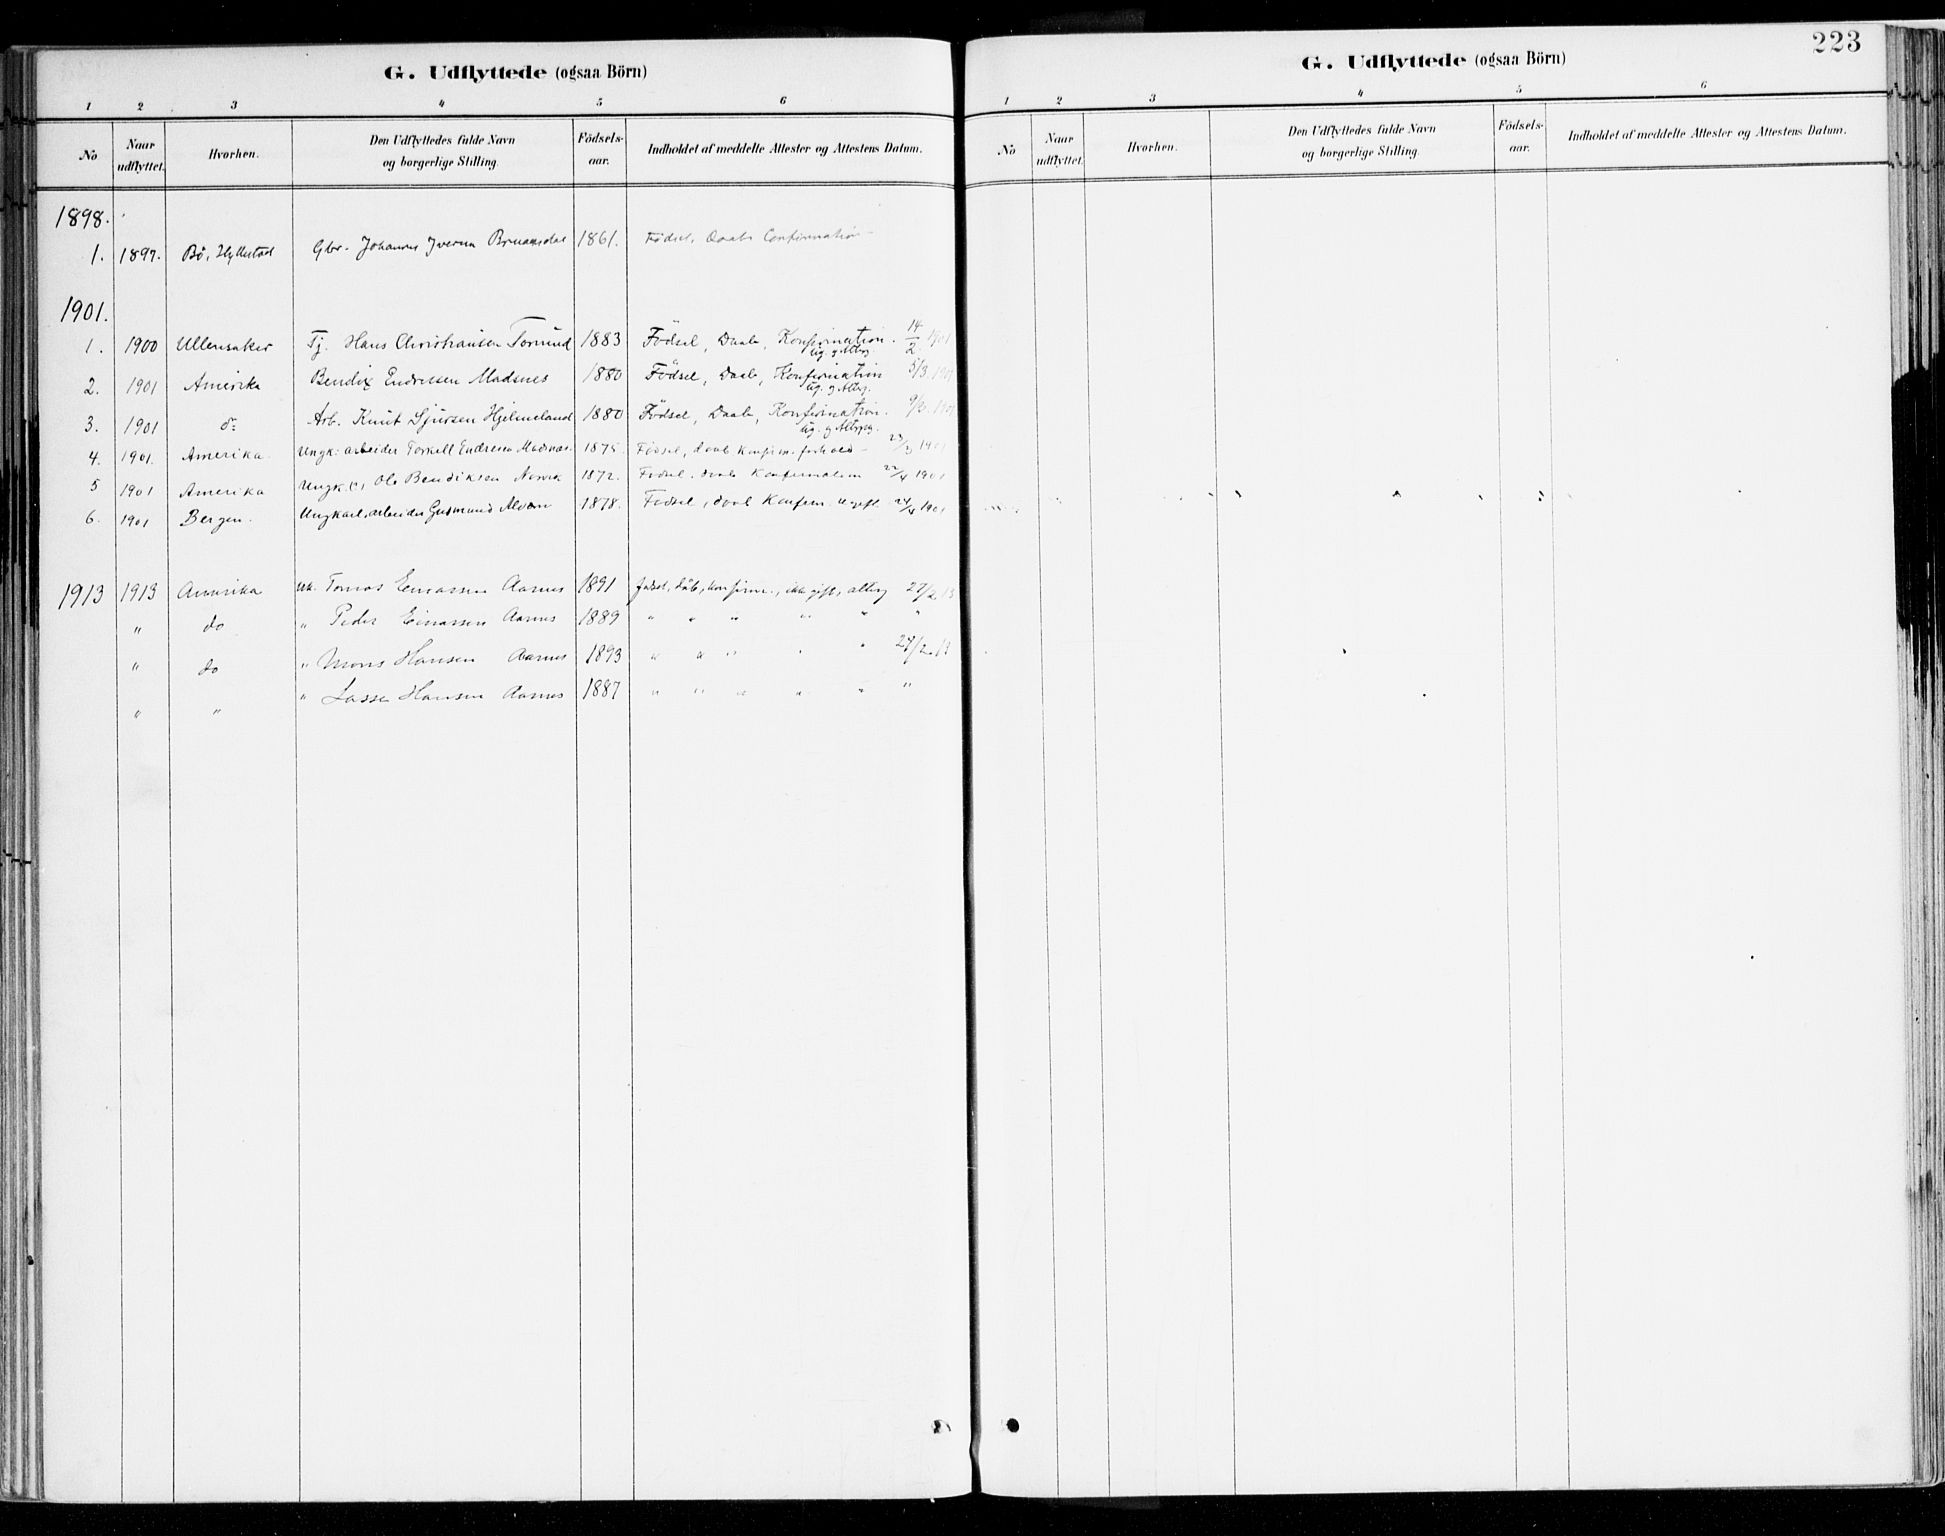 G. Udflyttede (ogsaa Börn)
1 2 3 4 5 6
No Naar udflyttet. Hvorhen. Den Udflyttedes fulde Navn og borgerlige Stilling. Födsels-aar. Indholdet af meddelte Attester og Attestens Datum.
1898.
1. 1897. Bö, Hyllestad Gbr. Johannes Iversen 1861. Fødsel, Daab, Confirmation
1901.
1. 1900 Ullensaker Tj. Hans Christiansen 1883 Födsel, Daab, Konfirmation. 14/2 1901
ug. og Altbg.
2. 1901 Amerika Bendix Endresen Madsnes 1880 Födsel, Daab, Konfirmation 5/3 1901
ug. og Altbg.
3. 1901 do Arb. Knut Sjursen Hjelmeland 1880 Födsel, Daab, Konfirmation. 1901
ug. og Altbg.
4. 1901. Amerika Ungk. arbeider Torkell Endresen Madsnes 1875. Födsel, daab Konfirm. forhold 1901
5 1901 Amerika Ungk. Ole Bendiksen 1872. Födsel, daab Konfirmation 22/4 1901
6. 1901 Bergen. Ungkarl, arbeider Gudmund 1878. Födsel, daab Konfirm. ugift. 24/4 1901
1913 1913 Amerika uk. Tomas Einarsen Aarnes 1891 født, dåb, konfirm., ikke gift, altbrg 27/2 13
" do " Peder Einarsen Aarnes 1889 " " " " " "
" do " Mons Hansen Aarnes 1893 " " " " " 27/2.13
" " " Lasse Hansen Aarnes 1887 " " " " " "
223
G. Udflyttede (ogsaa Börn)
1 2 3 4 5 6
No Naar udflyttet. Hvorhen. Den Udflyttedes fulde Navn og borgerlige Stilling. Födsels-aar. Indholdet af meddelte Attester og Attestens Datum.